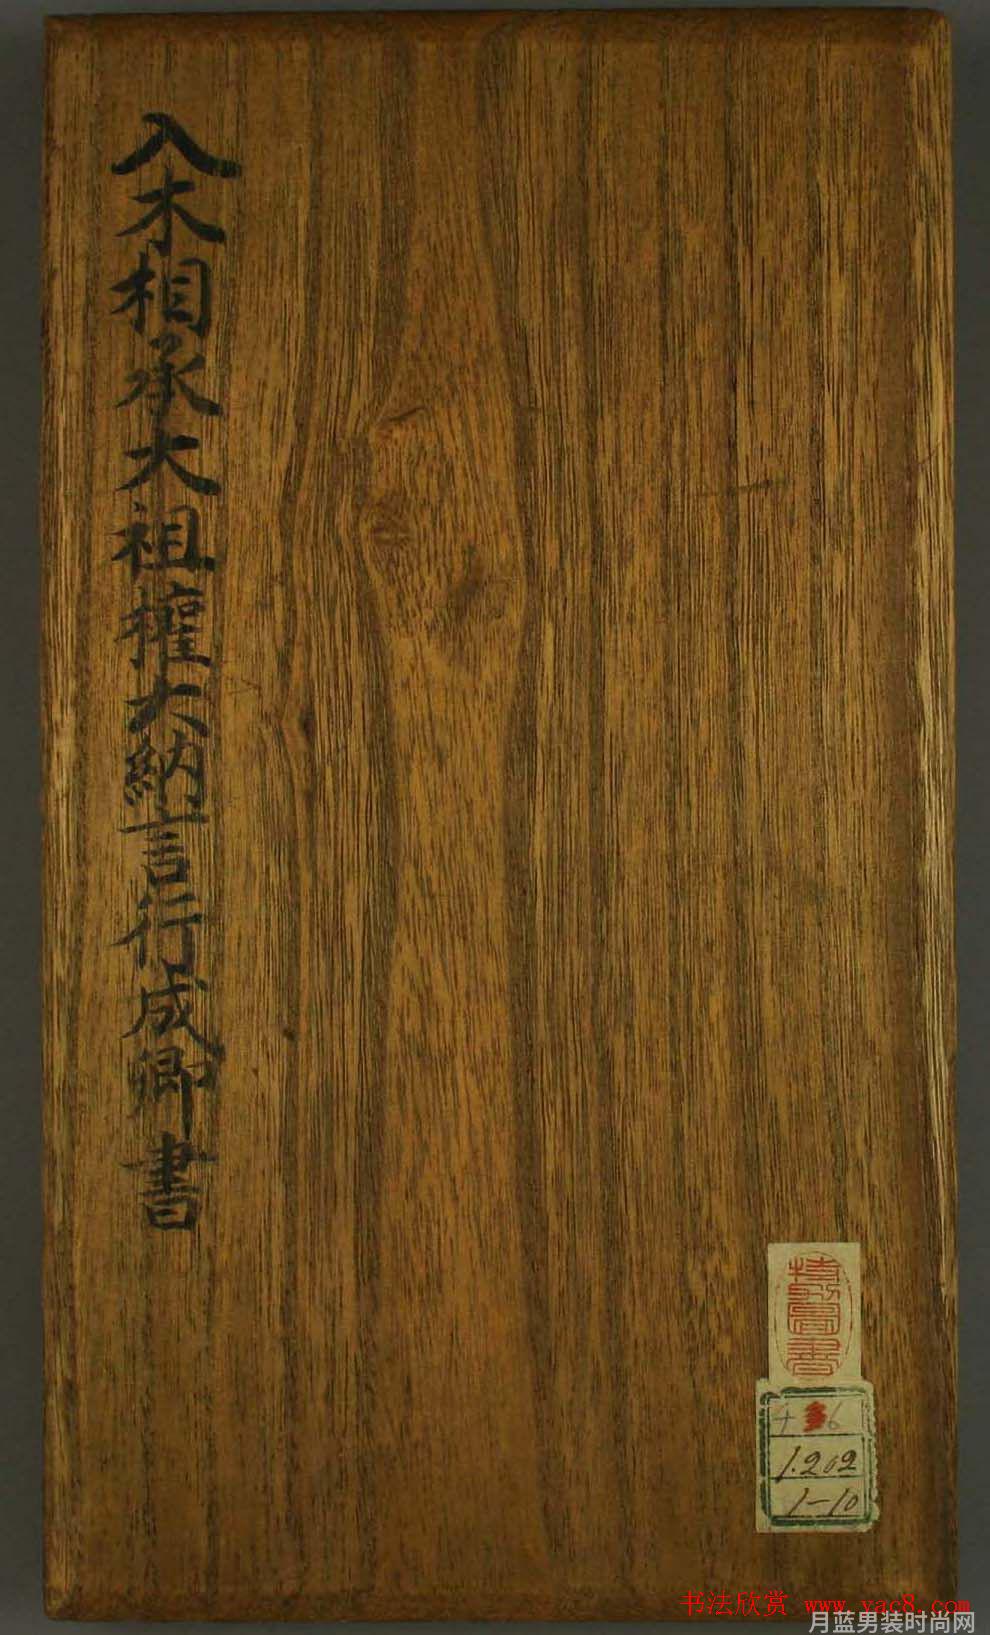 入木相承大祖權大納言行成卿書
特別
圖書
6
1.202
1-10
书法欣赏 www.yac8.com
月蓝男装时尚网